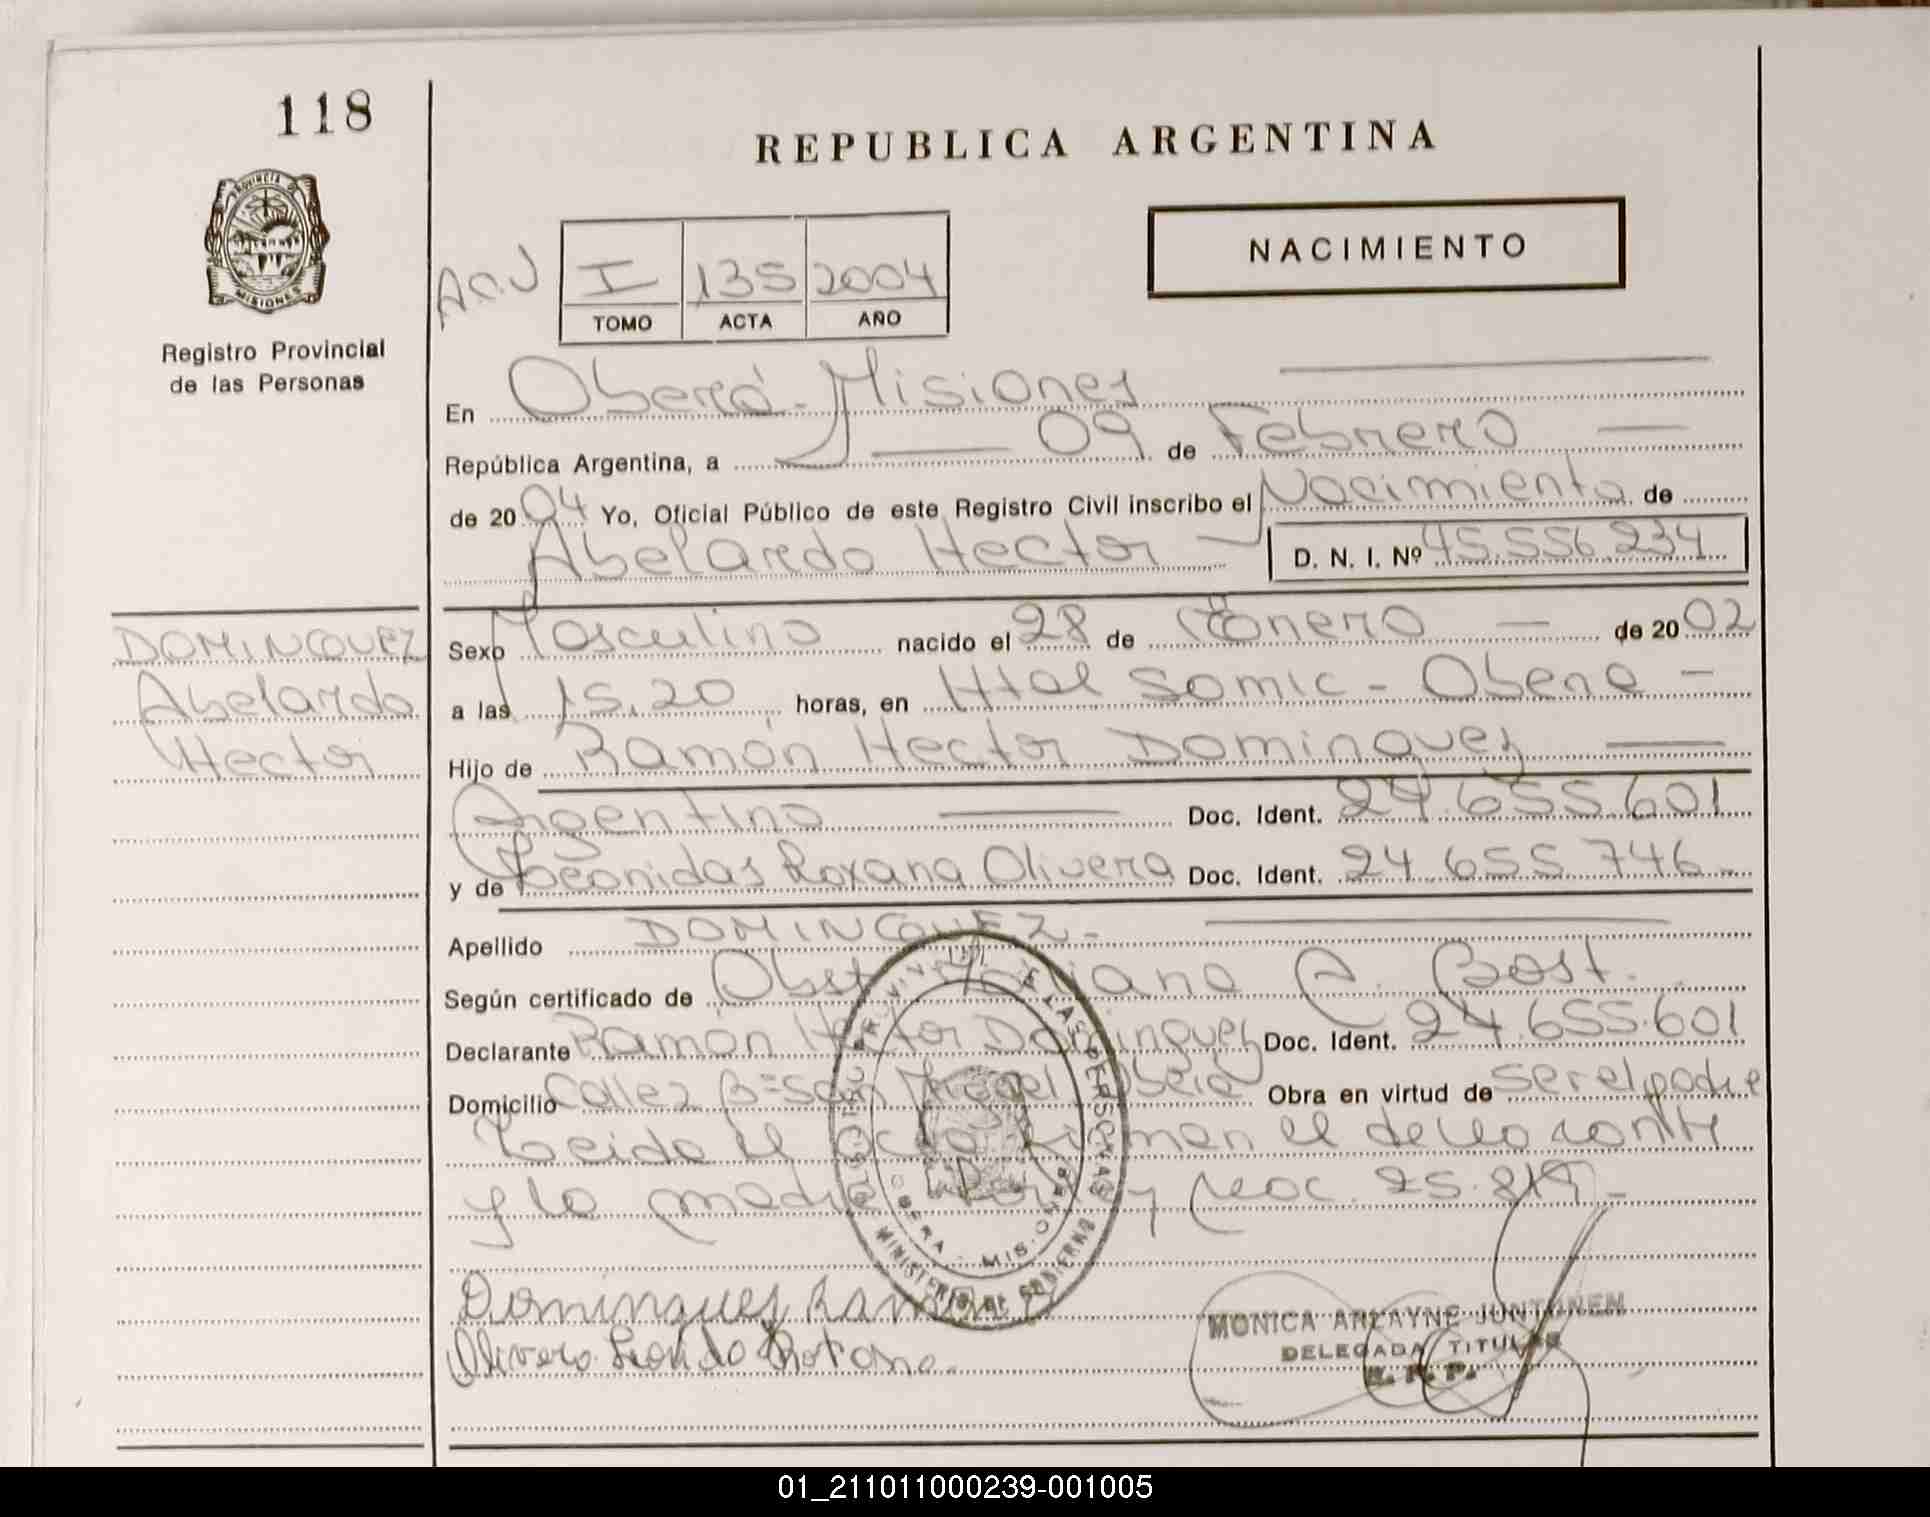 118
REPUBLICA ARGENTINA
PROVINCIA DE
MISIONES
NACIMIENTO
I 135 2004
TOMO ACTA AÑO
Registro Provincial
de las Personas
En Oberá - Misiones
República Argentina, a 09 de Febrero
de 2004 Yo, Oficial Público de este Registro Civil inscribo el Nacimiento de
Abelardo Hector D. N. I. Nº 45.556.234
DOMINGUEZ
Abelardo
Hector
Sexo Masculino nacido el 28 de Enero de 2002
a las 15.20 horas, en Htal Samic - Obera
Hijo de Ramón Hector Dominguez
Argentino Doc. Ident. 24.655.601
y de Leonidas Roxana Olivera Doc. Ident. 24.655.746
Apellido DOMINGUEZ -
Según certificado de Obst. A. Bost.
Declarante Ramon Hector Dominguez Doc. Ident. 24.655.601
Domicilio Calle 2 Bº San Miguel Obera Obra en virtud de ser el padre
Leida el acta firman el declarante
y la madre 25.819 -
MINISTERIO DE GOBIERNO
OBERA - MIS.
Dominguez Ramon
Olivera Roxana.
MONICA ARLAYNE JUNTONEM
DELEGADA TITULAR
R. P. P.
01_211011000239-001005